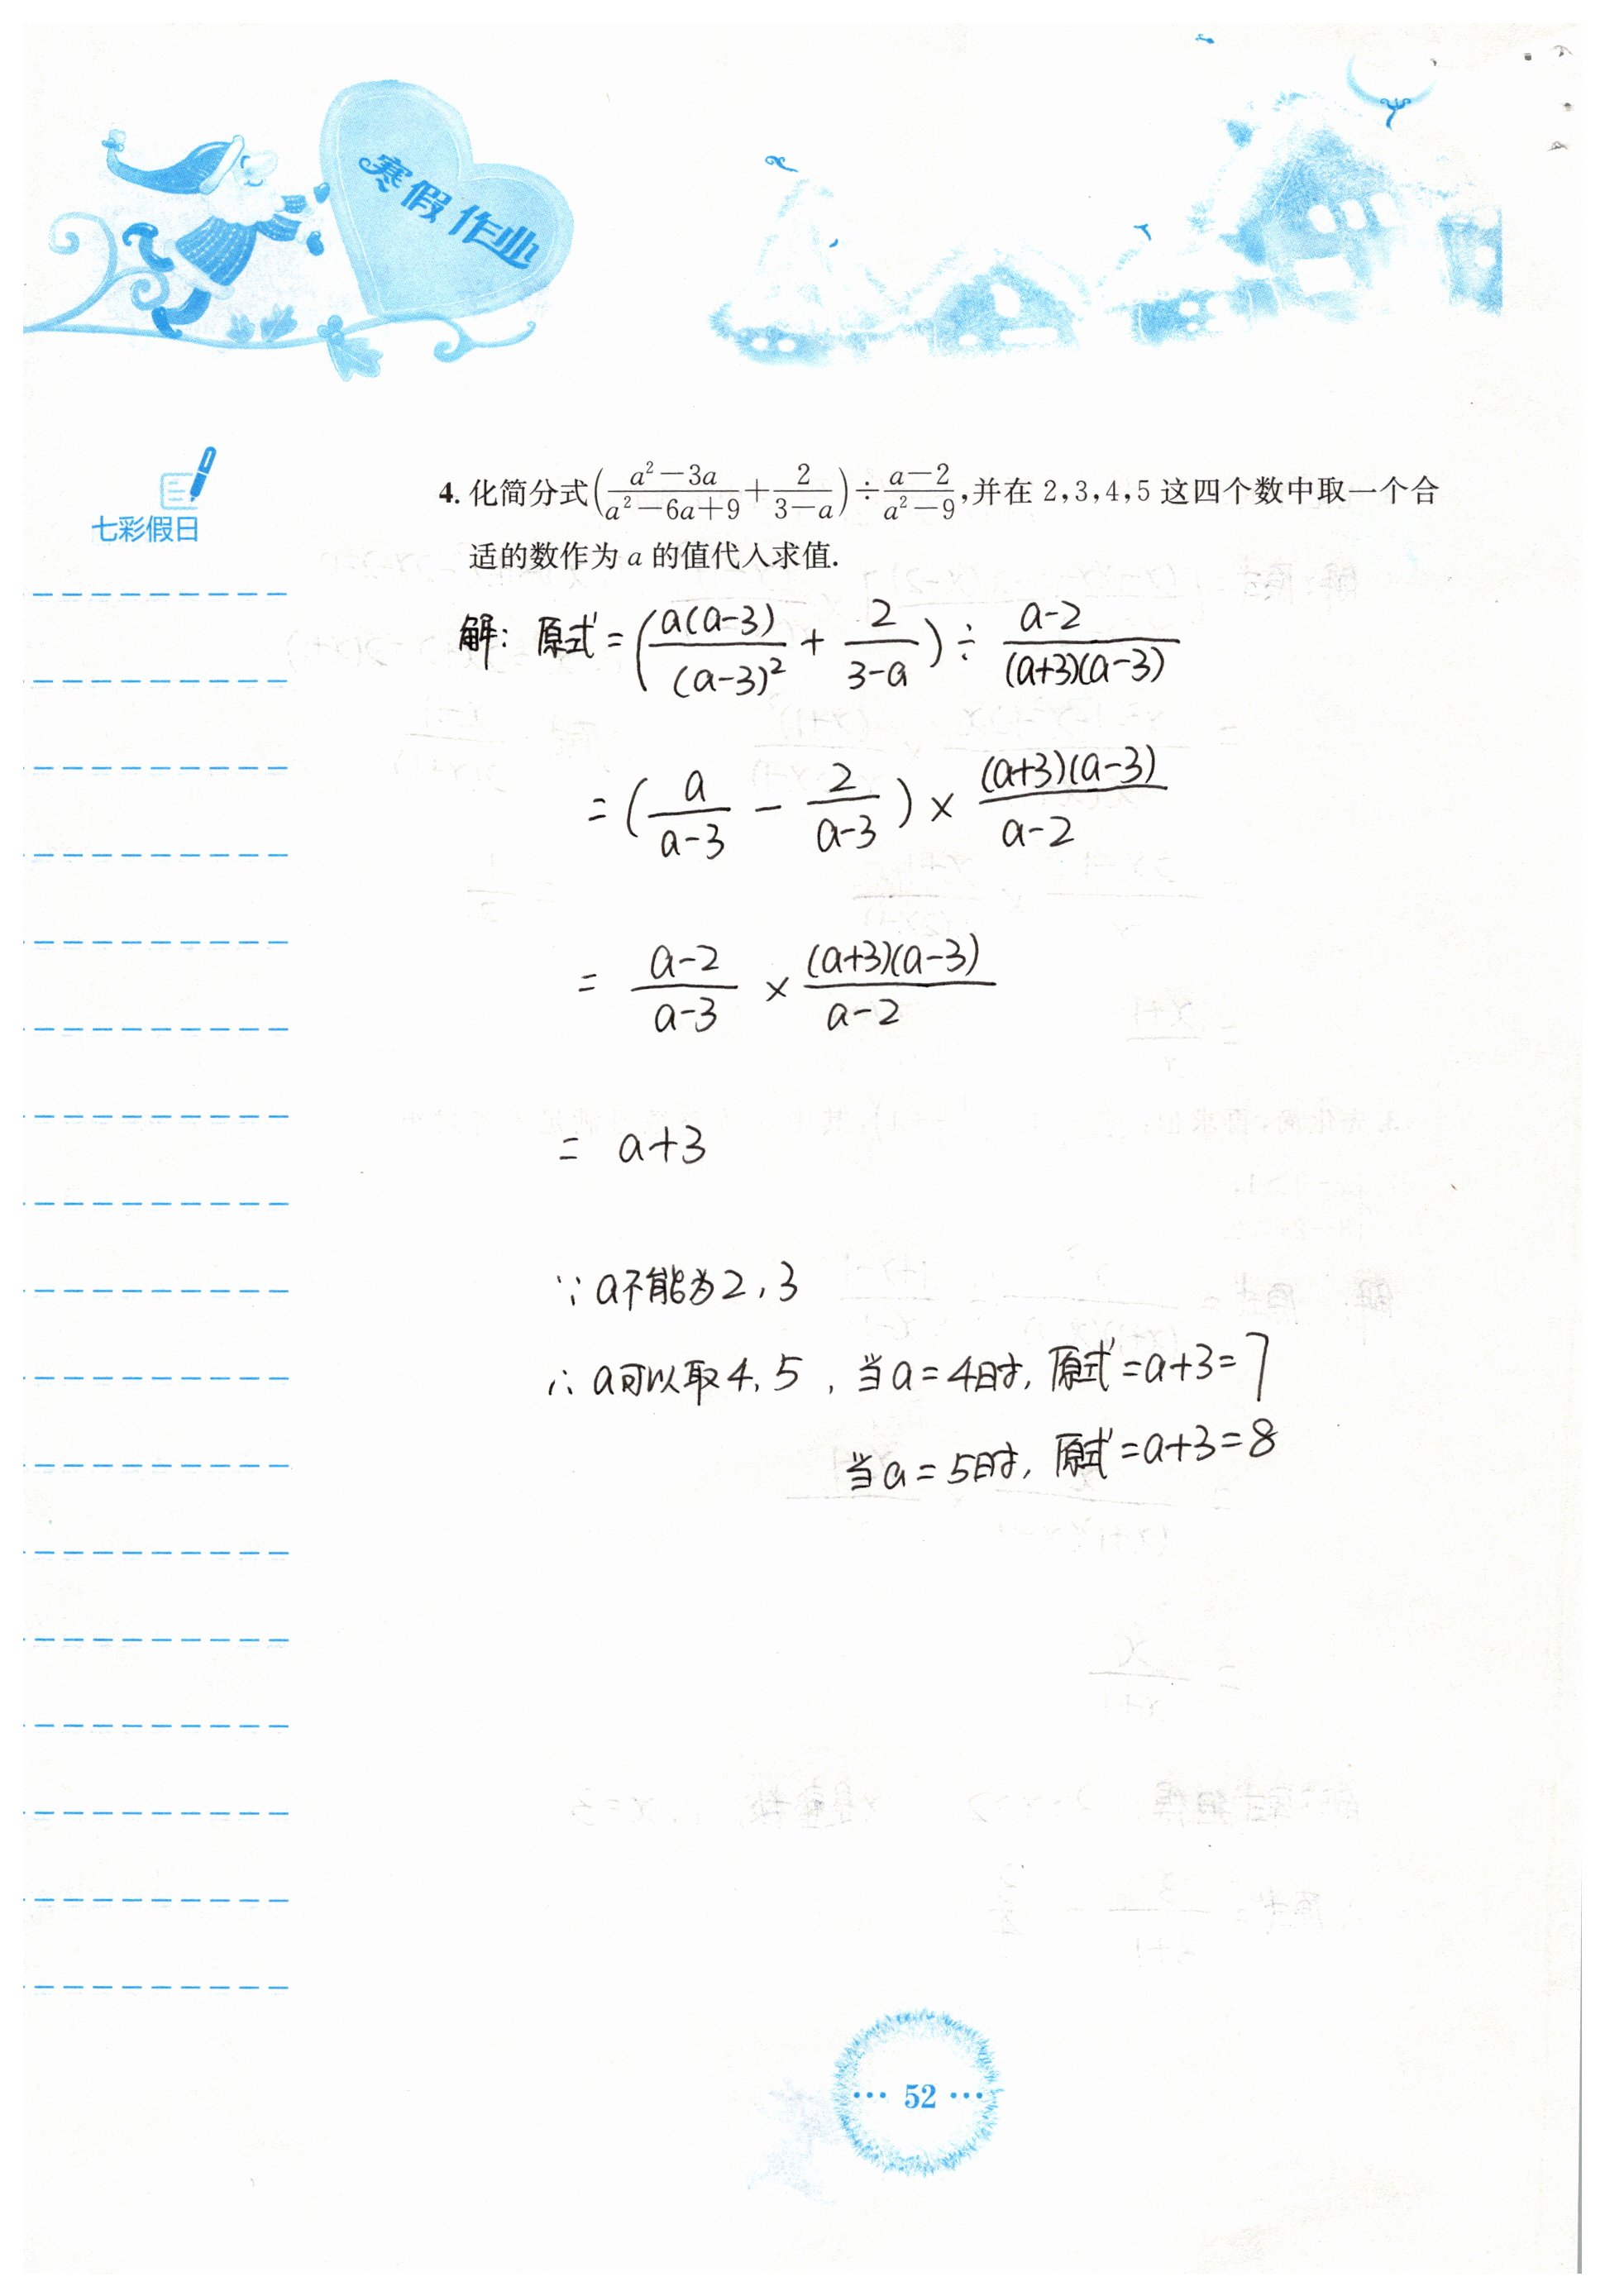 寒假作业
七彩假日
4. 化简分式(\frac{a²-3a}{a²-6a+9}+\frac{2}{3-a})÷\frac{a-2}{a²-9},并在 2,3,4,5 这四个数中取一个合
适的数作为 a 的值代入求值.
解: 原式=(\frac{a(a-3)}{(a-3)²}+\frac{2}{3-a})÷\frac{a-2}{(a+3)(a-3)}
=(\frac{a}{a-3}-\frac{2}{a-3})×\frac{(a+3)(a-3)}{a-2}
=\frac{a-2}{a-3}×\frac{(a+3)(a-3)}{a-2}
= a+3
∵a不能为2,3
∴a可以取4,5,当a=4时,原式=a+3=7
当a=5时,原式=a+3=8
··· 52 ···